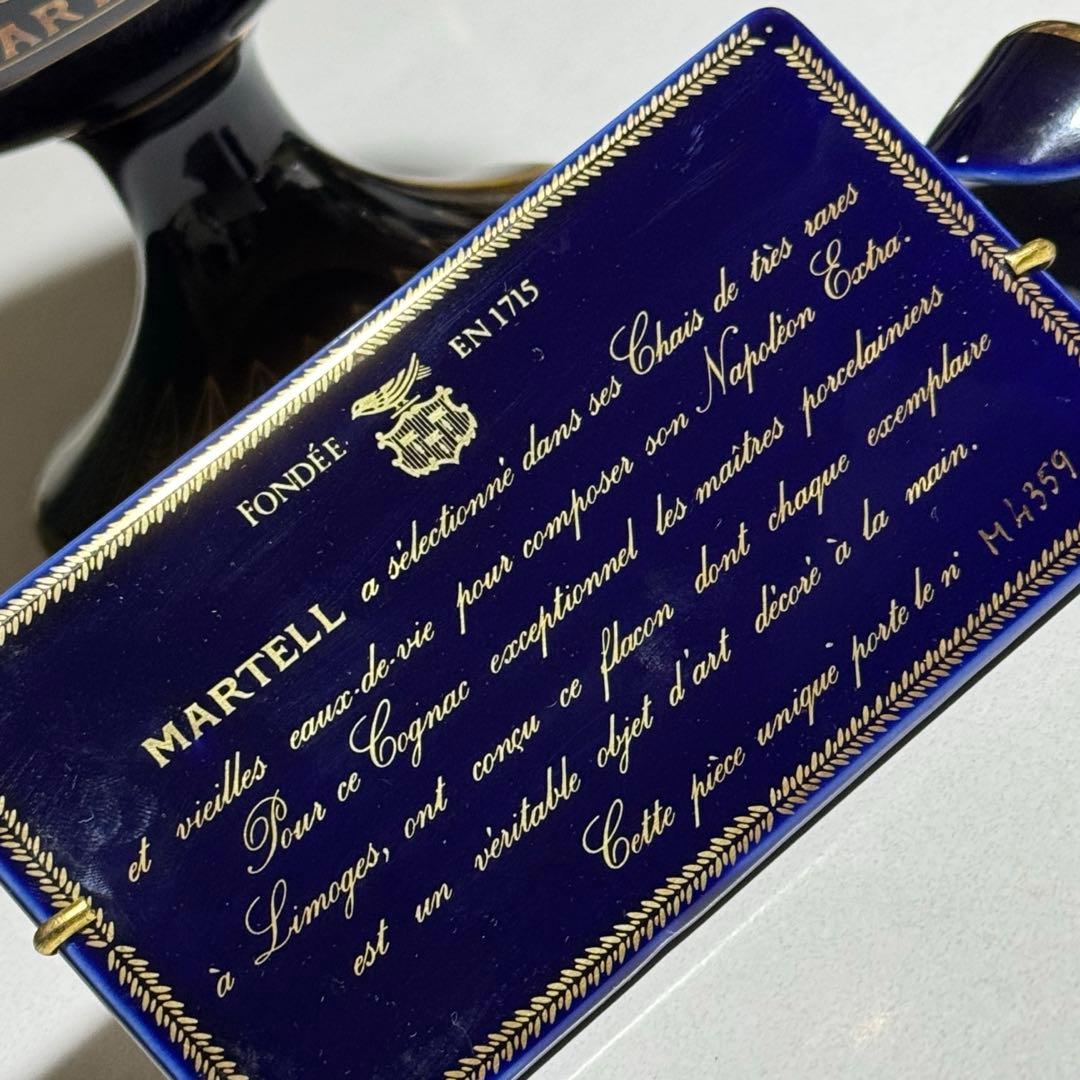 FONDÉE EN 1715
MARTELL a sélectionné dans ses Chais de très rares
et vieilles eaux-de-vie pour composer son Napoléon Extra.
Pour ce Cognac exceptionnel les maîtres porcelainiers
à Limoges, ont conçu ce flacon dont chaque exemplaire
est un véritable objet d'art décoré à la main.
Cette pièce unique porte le n° M4359